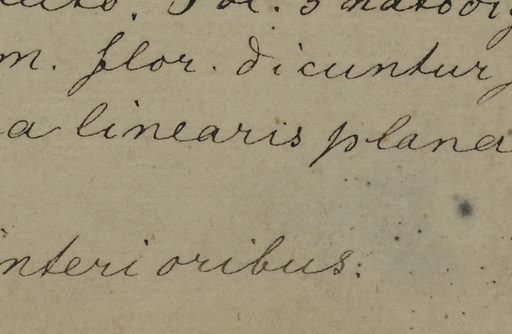 m. flor. dicuntur
a linearis plana
interioribus.